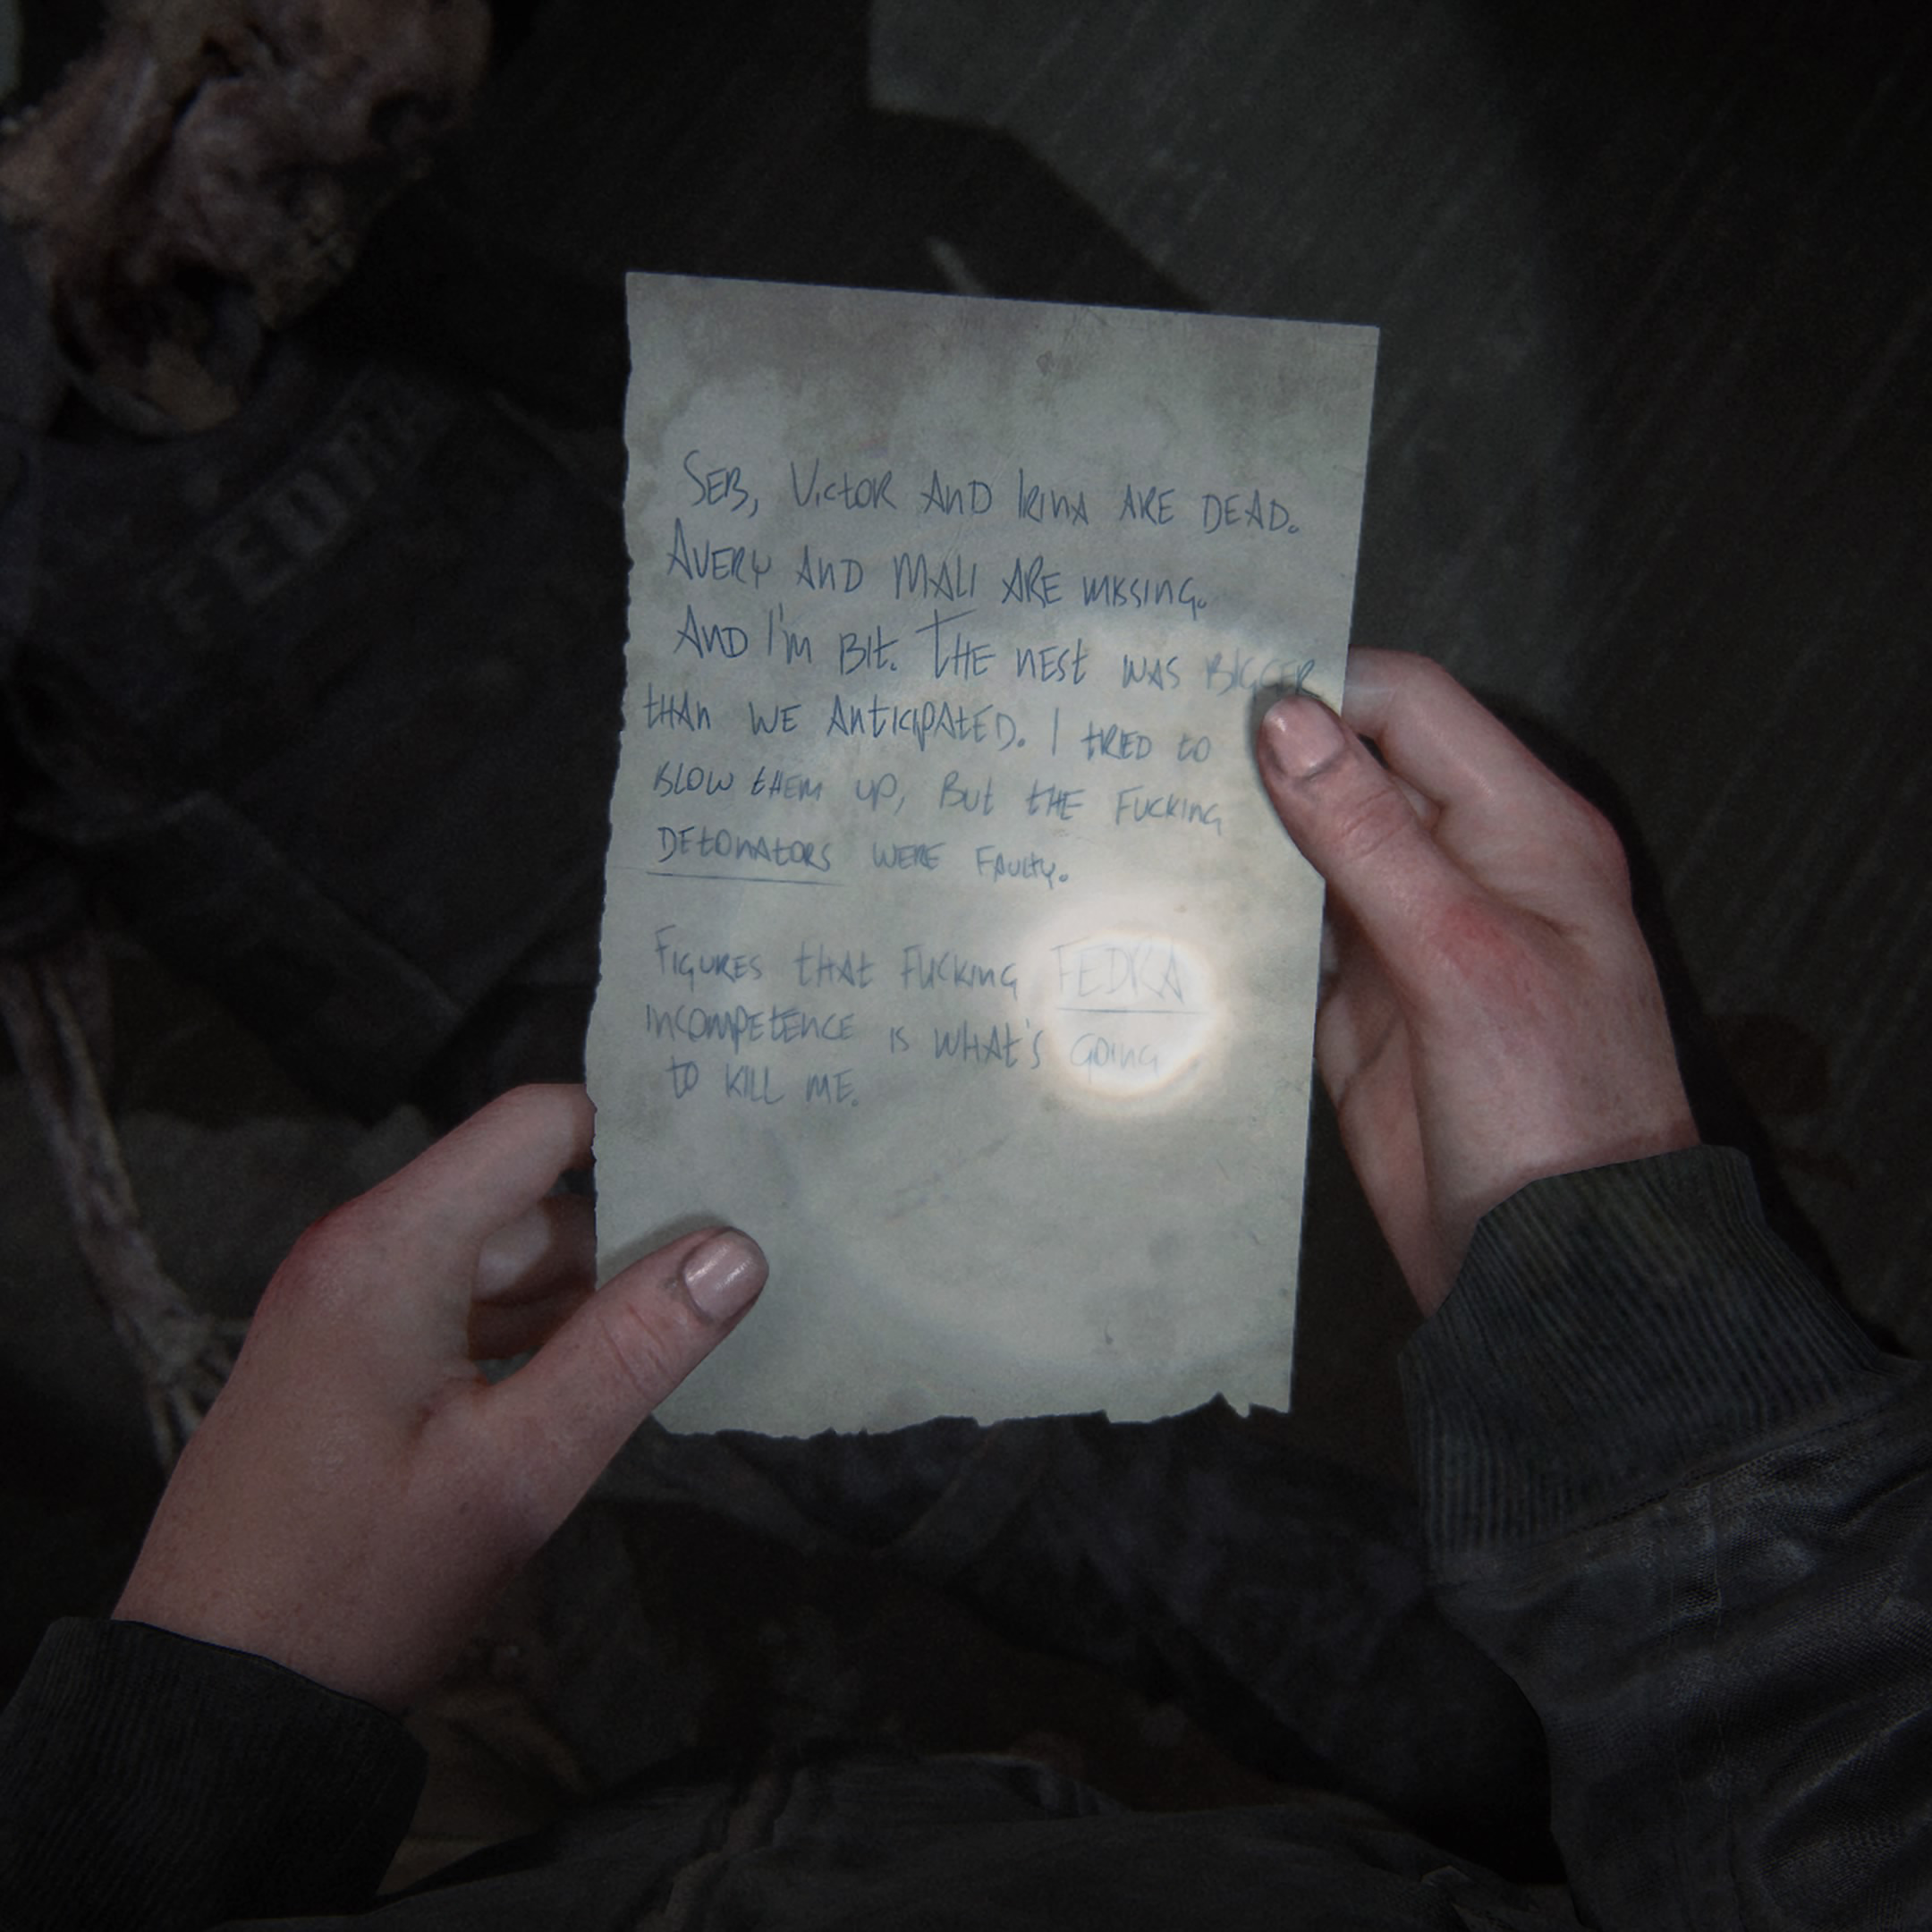 FEDRA
SEB, VICTOR AND IRINA ARE DEAD.
AVERY AND MALI ARE MISSING.
AND I'M BIT. THE NEST WAS BIGGER
THAN WE ANTICIPATED. I TRIED TO
BLOW THEM UP, BUT THE FUCKING
DETONATORS WERE FAULTY.
FIGURES THAT FUCKING FEDRA
INCOMPETENCE IS WHAT'S GOING
TO KILL ME.